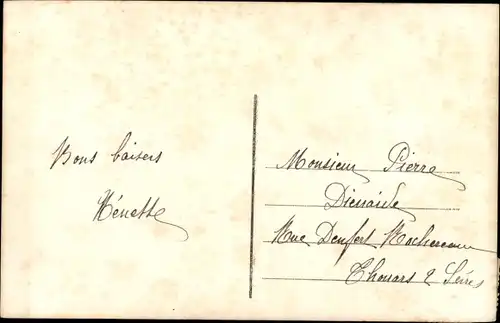 Bons baisers
Nénette
Monsieur Pierre
Dieuaide
Rue Denfert Rochereau
Thouars 2 Sèvres